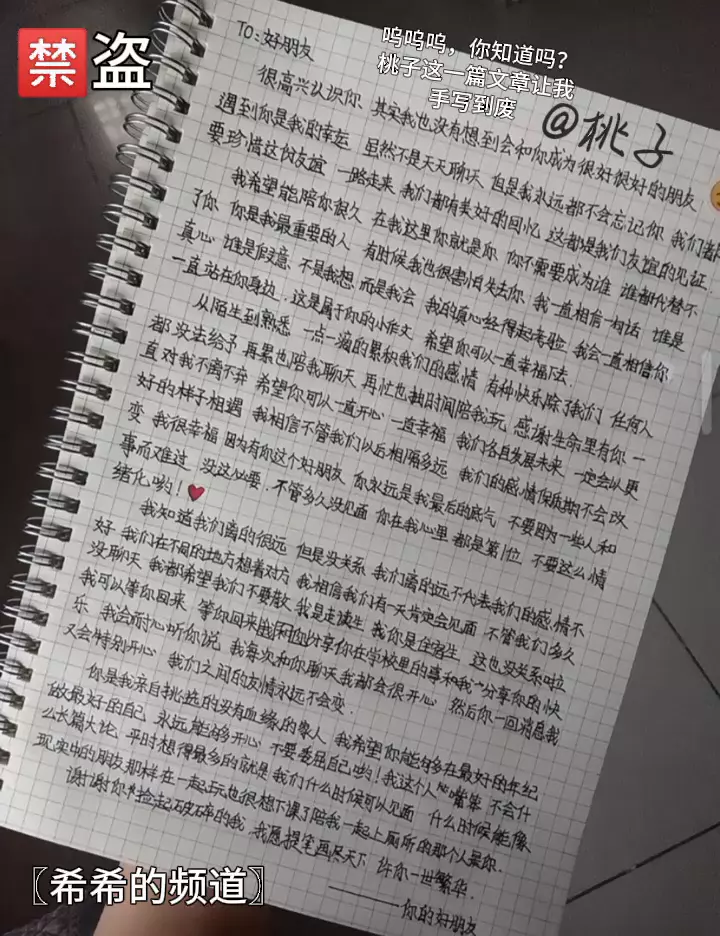 禁盗
呜呜呜，你知道吗？
桃子这一篇文章让我
手写到废
@桃子
TO：好朋友
很高兴认识你 其实我也没有想到会和你成为很好很好的朋友
遇到你是我的幸运 虽然不是天天聊天 但是我永远都不会忘记你 我们都
要珍惜这份友谊 一路走来 我们都有美好的回忆 这都是我们友谊的见证.
我希望能陪你很久 在我这里你就是你 你不需要成为谁 谁都代替不
了你 你是我最重要的人 有时候我也很害怕失去你 我一直相信一句话 谁是
真心 谁是假意 不是我想 而是我会 我的真心经得起考验 我会一直相信你
一直站在你身边. 这是属于你的小作文 希望你可以一直幸福下去.
从陌生到熟悉 一点一滴的累积我们的感情 有种快乐除了我们 任何人
都没法给予 再累也陪我聊天 再忙也抽时间陪我玩 感谢生命里有你 一
直对我不离不弃 希望你可以一直开心 一直幸福 我们各自发展未来 一定会以更
好的样子相遇 我相信不管我们以后相隔多远 我们的感情保质期不会改
变 我很幸福 因为有你这个好朋友 你永远是我最后的底气 不要因为一些人和
事而难过 没这必要. 不管多久没见面 你在我心里都是第1位 不要这么情
绪化哟！
我知道我们离的很远 但是没关系 我们离的远不代表我们的感情不
好 我们在不同的地方想着对方 我相信我们有一天肯定会见面 不管我们多久
没聊天 我都希望我们不要散 我是走读生 我你是住宿生 这也没关系啦
我可以等你回来 等你回来分享你在学校里的事和我分享你的快
乐 我会耐心听你说 我每次和你聊天我都会很开心 然后你一回消息我
又会特别开心 我们之间的友情永远不会变.
你是我亲自挑选的没有血缘的家人 我希望你能够在最好的年纪
做最好的自己 永远能够开心 不要委屈自己哟！我这个人嘴笨 不会什
么长篇大论 平时想得最多的就是我们什么时候可以见面 什么时候能像
现实中的朋友那样在一起玩也很想下课了陪我一起上厕所的那个人是你.
谢谢你捡起破碎的我 我愿提笔画尽天下 许你一世繁华.
——你的好朋友
〖希希的频道〗